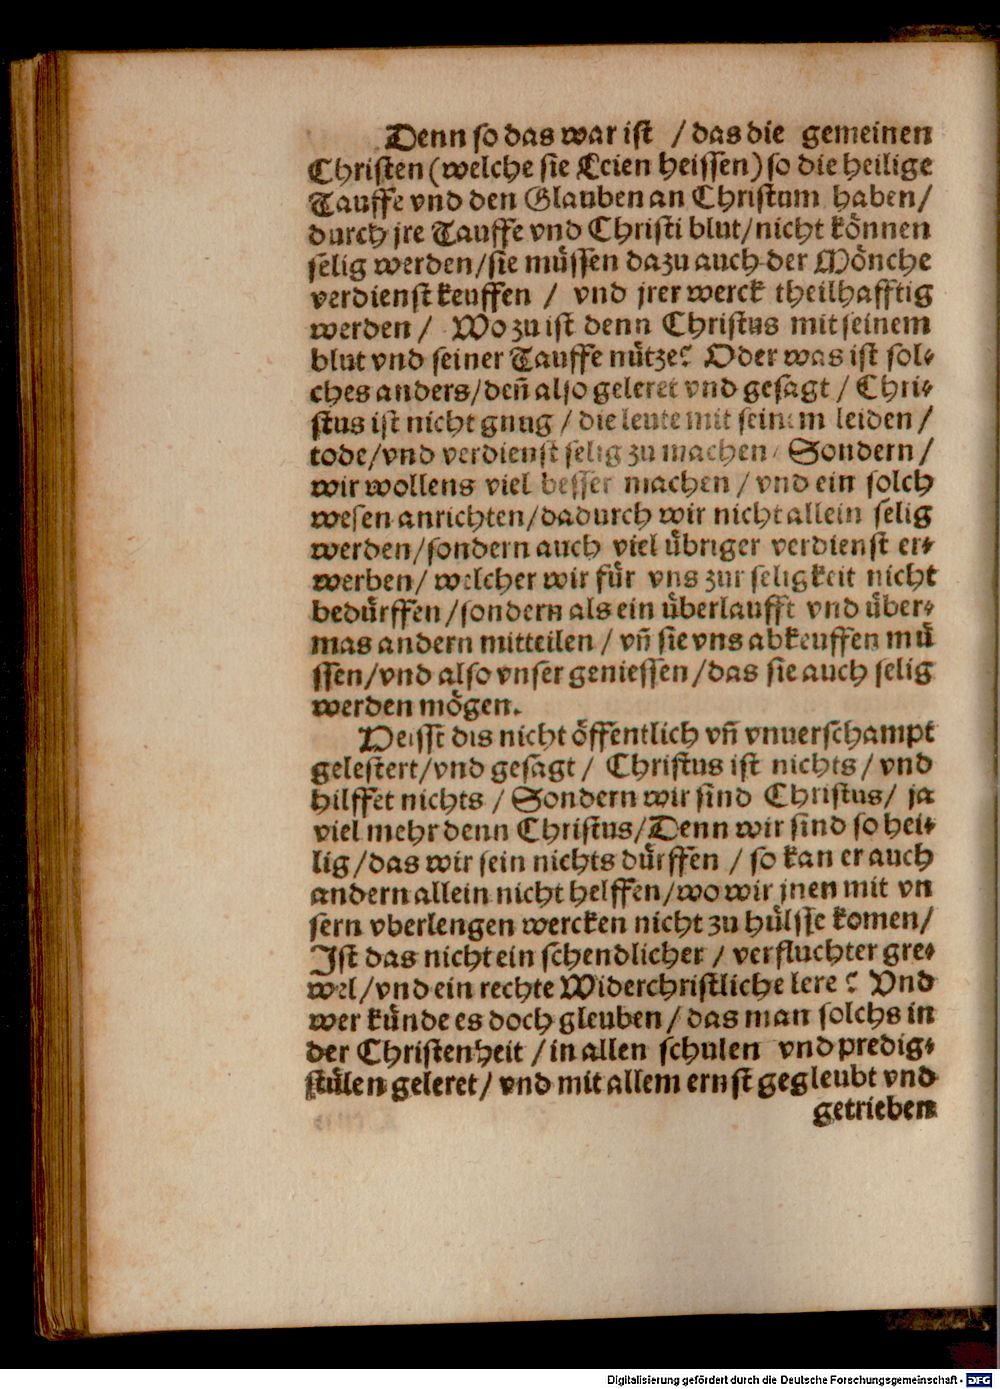 Denn so das war ist / das die gemeinen
Christen (welche sie Leien heissen) so die heilige
Tauffe vnd den Glauben an Christum haben /
durch jre Tauffe vnd Christi blut / nicht können
selig werden / sie müssen dazu auch der Mönche
verdienst keuffen / vnd jrer werck theilhafftig
werden / Wo zu ist denn Christus mit seinem
blut vnd seiner Tauffe nütze? Oder was ist sol⸗
ches anders / deñ also geleret vnd gesagt / Chri⸗
stus ist nicht gnug / die leute mit seinem leiden /
tode / vnd verdienst selig zu machen / Sondern /
wir wollens viel besser machen / vnd ein solch
wesen anrichten / dadurch wir nicht allein selig
werden / sondern auch viel übriger verdienst er⸗
werben / welcher wir für vns zur seligkeit nicht
bedürffen / sondern als ein überlaufft vnd über⸗
mas andern mitteilen / vñ sie vns abkeuffen mü
ssen / vnd also vnser geniessen / das sie auch selig
werden mögen.
Heisst dis nicht öffentlich vñ vnuerschampt
gelestert / vnd gesagt / Christus ist nichts / vnd
hilffet nichts / Sondern wir sind Christus / ja
viel mehr denn Christus / Denn wir sind so hei⸗
lig / das wir sein nichts dürffen / so kan er auch
andern allein nicht helffen / wo wir jnen mit vn
sern vberlengen wercken nicht zu hülffe komen /
Ist das nicht ein schendlicher / verfluchter gre⸗
wel / vnd ein rechte Widerchristliche lere? Vnd
wer künde es doch gleuben / das man solchs in
der Christenheit / in allen schulen vnd predig⸗
stülen geleret / vnd mit allem ernst gegleubt vnd
getrieben
Digitalisierung gefördert durch die Deutsche Forschungsgemeinschaft - DFG